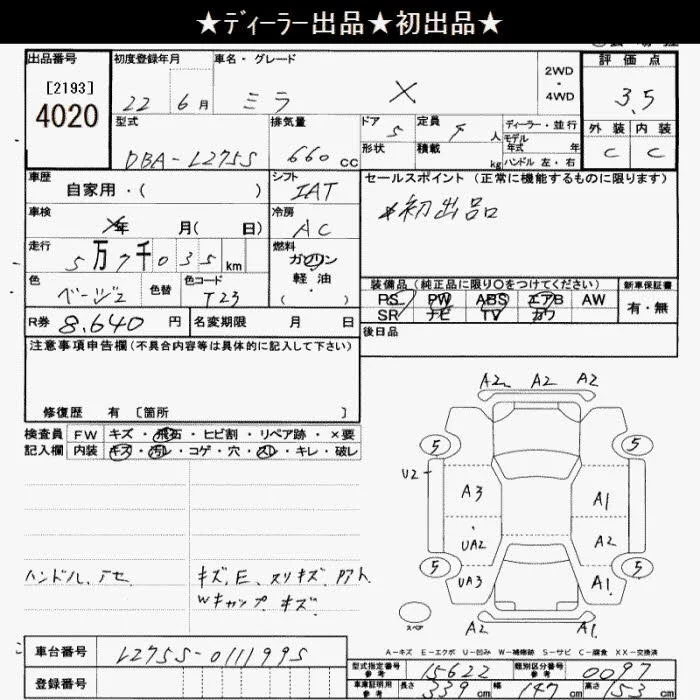 ★ディーラー出品★初出品★
出品番号 初度登録年月 車名・グレード 2WD・4WD 評価点
[2193]
4020
22 6月 ミラ X 3.5
型式 排気量 ドア 定員 ディーラー・並行 外装 内装
DBA-L275S 660cc 5 人 モデル年式 年 C C
形状 積載 kg ハンドル 左・右
車歴 シフト セールスポイント(正常に機能するものに限ります)
自家用・( ) IAT
初出品
車検 冷房
年 月( 日) AC
走行 燃料
5万7千035km ガソリン
軽油
装備品(純正品に限り○をつけてください) 新車保証書
色 色替 色コード
ベージュ T23
PS PW ABS エアB AW 有・無
SR ナビ TV カワ
R券 8,640円 名変期限 月 日
後日品
注意事項申告欄(不具合内容等は具体的に記入して下さい)
修復歴 有 [箇所 ]
検査員 FW キズ・飛石・ヒビ割・リペア跡・×要
記入欄 内装 キズ・汚レ・コゲ・穴・スレ・キレ・破レ
A2 A2 A2
5 5
U2
A3 A1
UA2 A2
5 5
UA3 A1
スペア
A2 A1
ハンドル、アセ
キズ、E、スリキズ、アト
Wキャップ キズ
A-キズ E-エクボ U-凹み W-補修跡 S-サビ C-腐食 XX-交換済
車台番号 L275S-0111995
登録番号
型式指定番号 参考 15622 類別区分番号 参考 0097
車庫証明用 参考 長さ 339cm 幅 147cm 高さ 153cm